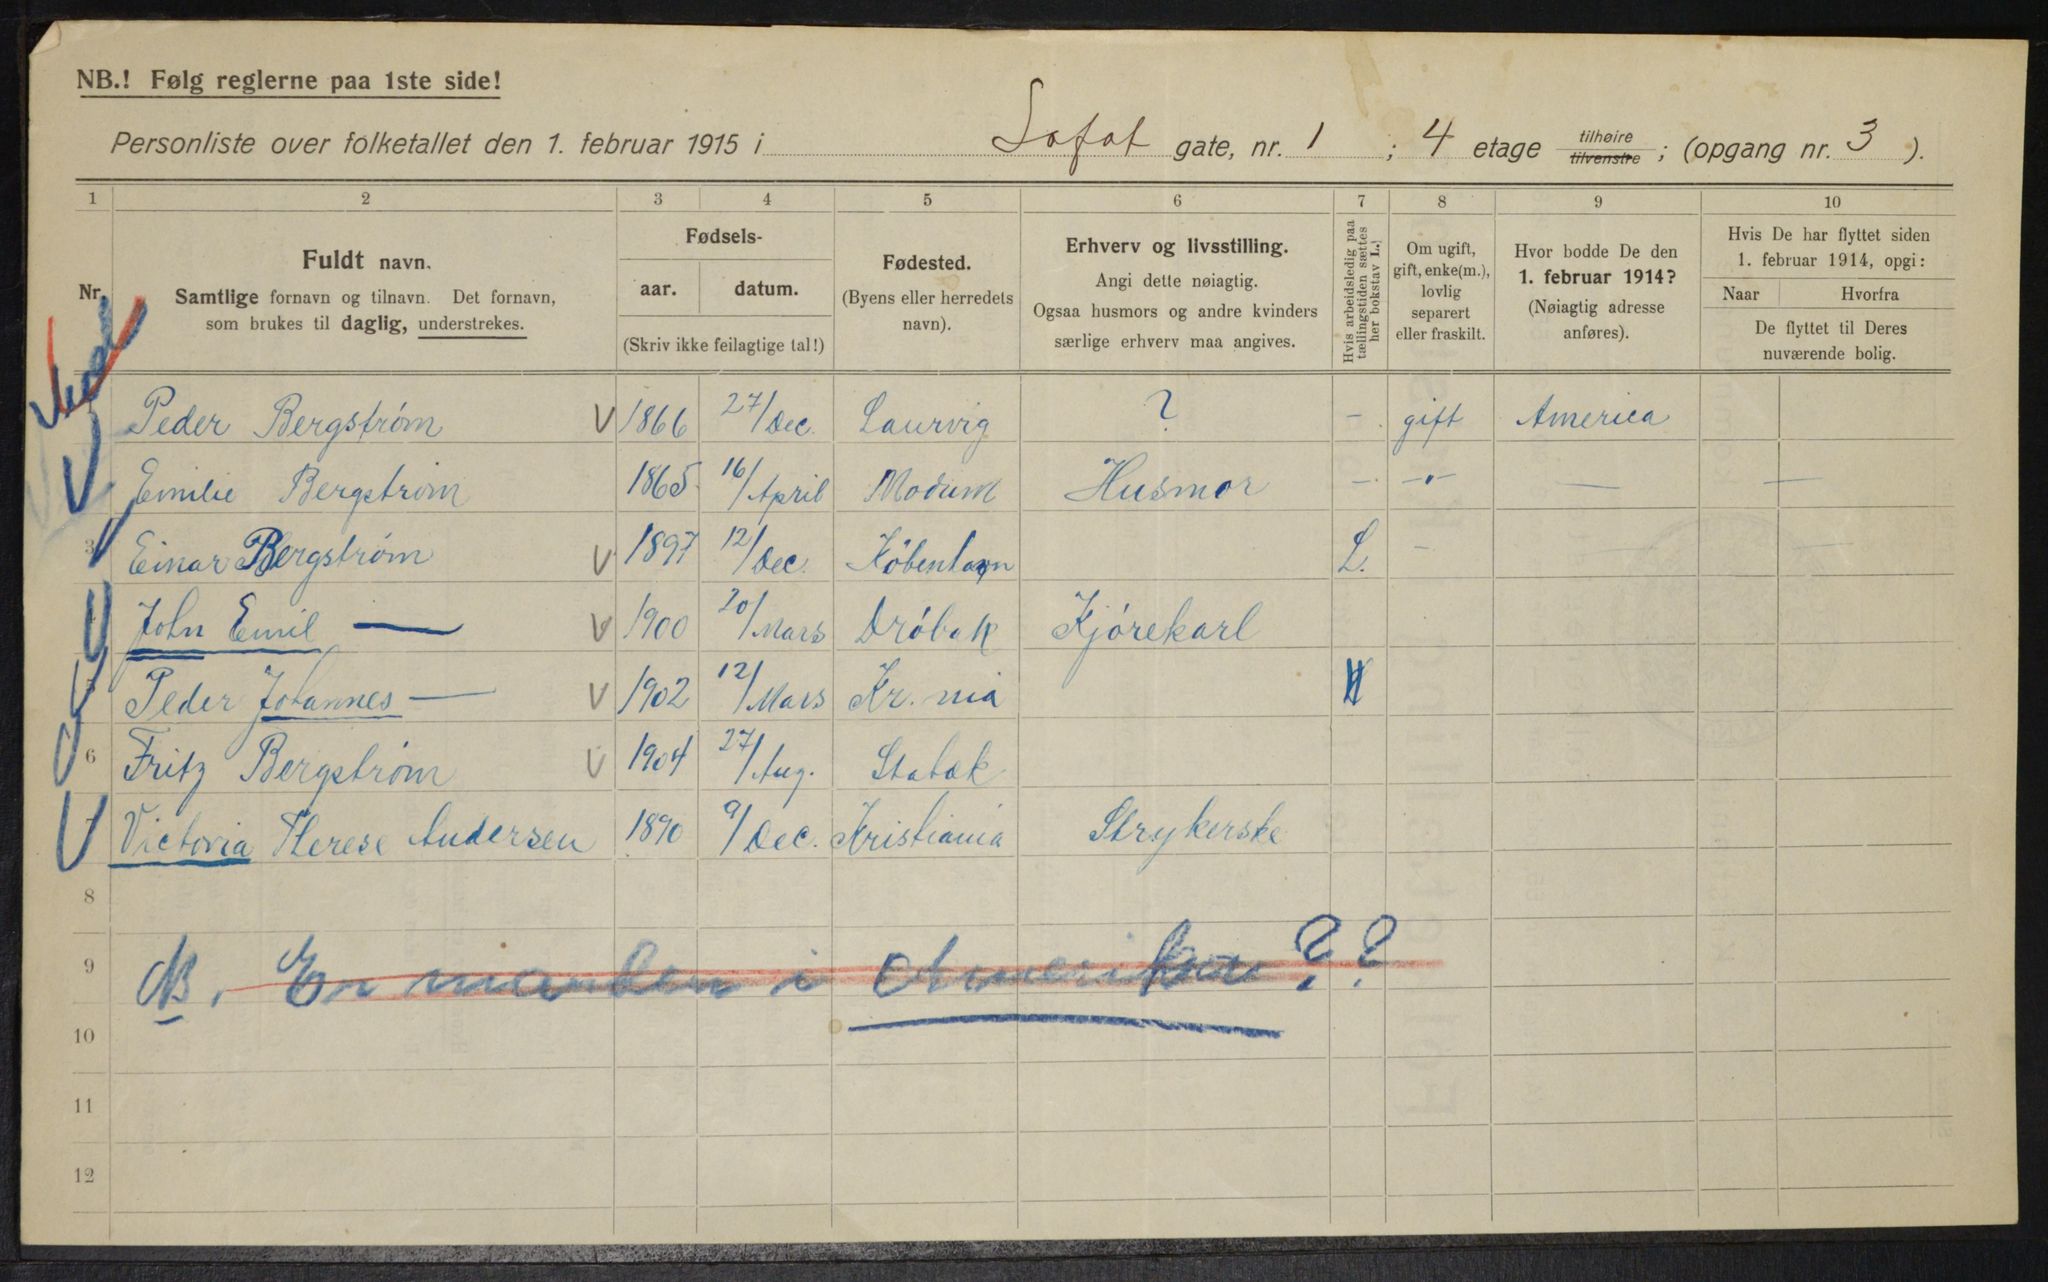 NB.! Følg reglerne paa 1ste side!
Personliste over folketallet den 1. februar 1915 i Sofat gate, nr. 1 ; 4 etage tilhøire tilvenstre ; (opgang nr. 3 ).
1 2 3 4 5 6 7 8 9 10
Nr.
Fuldt navn.
Samtlige fornavn og tilnavn. Det fornavn,
som brukes til daglig, understrekes.
Fødsels-
aar. datum.
(Skriv ikke feilagtige tal!)
Fødested.
(Byens eller herredets
navn).
Erhverv og livsstilling.
Angi dette nøiagtig.
Ogsaa husmors og andre kvinders
særlige erhverv maa angives.
Hvis arbeidsledig paa
tællingstiden sættes
her bokstav L.
Om ugift,
gift, enke(m.),
lovlig
separert
eller fraskilt.
Hvor bodde De den
1. februar 1914?
(Nøiagtig adresse
anføres).
Hvis De har flyttet siden
1. februar 1914, opgi:
Naar Hvorfra
De flyttet til Deres
nuværende bolig.
Peder Bergstrøm V 1866 27/Dec. Laurvig ? - gift America
Emilie Bergstrøm 1865 16/April Modum Husmor - -"- — —
3 Einar Bergstrøm V 1897 12/Dec. København L. - — —
John Emil — V 1900 20/Mars Drøbak Kjørekarl
5 Peder Johannes — V 1902 12/Mars Kr. nia
6 Fritz Bergstrøm V 1904 27/Aug. Stabæk
7 Victoria Therese Andersen 1890 9/Dec. Kristiania Strykerske
8
9 NB. Er manden i Amerika ? ?
10
11
12